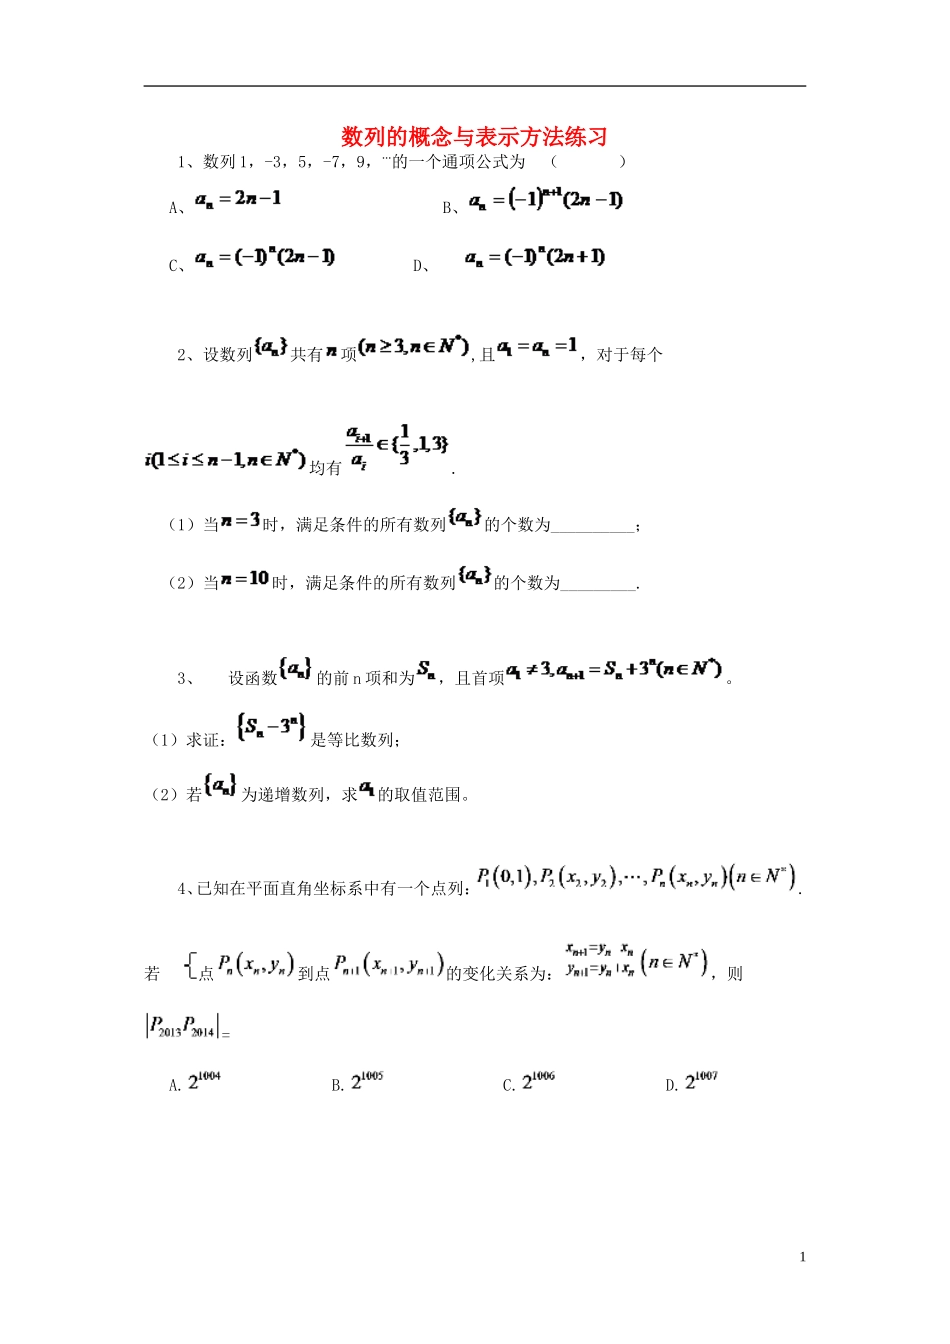 数列的概念与表示方法练习
1、数列 1，-3，5，-7，9，…的一个通项公式为 （ ）
A、aₙ=2n-1 B、aₙ=(-1)ⁿ⁺¹(2n-1)
C、aₙ=(-1)ⁿ(2n-1) D、 aₙ=(-1)ⁿ(2n+1)
2、设数列{aₙ}共有n项(n≥3,n∈N*),且a₁=aₙ=1，对于每个
i(1≤i≤n-1,n∈N*)均有 aᵢ₊₁/aᵢ∈{1/3,1,3}.
（1）当n=3时，满足条件的所有数列{aₙ}的个数为__________；
（2）当n=10时，满足条件的所有数列{aₙ}的个数为_________.
3、 设函数{aₙ}的前 n 项和为Sₙ，且首项a₁≠3,aₙ₊₁=Sₙ+3ⁿ(n∈N*)。
（1）求证：{Sₙ-3ⁿ}是等比数列；
（2）若{aₙ}为递增数列，求a₁的取值范围。
4、已知在平面直角坐标系中有一个点列：P₁(0,1),P₂(x₂,y₂),⋯,Pₙ(xₙ,yₙ)(n∈N*).
若 {点Pₙ(xₙ,yₙ)到点Pₙ₊₁(xₙ₊₁,yₙ₊₁)的变化关系为：xₙ₊₁=yₙ xₙ yₙ₊₁=yₙ+xₙ(n∈N*)，则
|P₂₀₁₃P₂₀₁₄|=
A.2¹⁰⁰⁴ B.2¹⁰⁰⁵ C.2¹⁰⁰⁶ D.2¹⁰⁰⁷
1